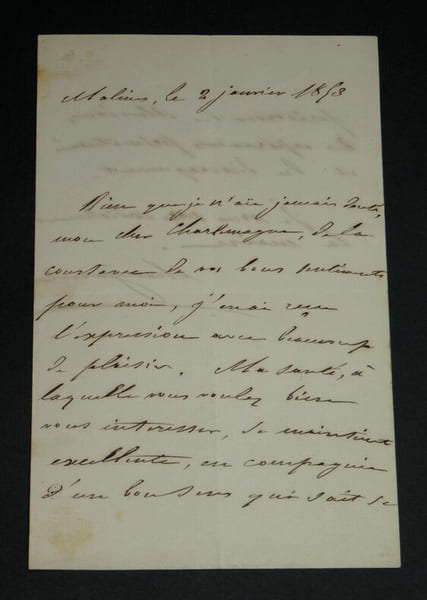 Malines, le 2 janvier 1853
Bien que je n'aie jamais douté,
mon cher Charlemagne, de la
constance de vos bons sentiments
pour moi, j'en ai reçu
l'expression avec beaucoup
de plaisir. Ma santé, à
laquelle vous voulez bien
vous interesser, se maintient
excellente, en compagnie
d'un bon sens qui sait se